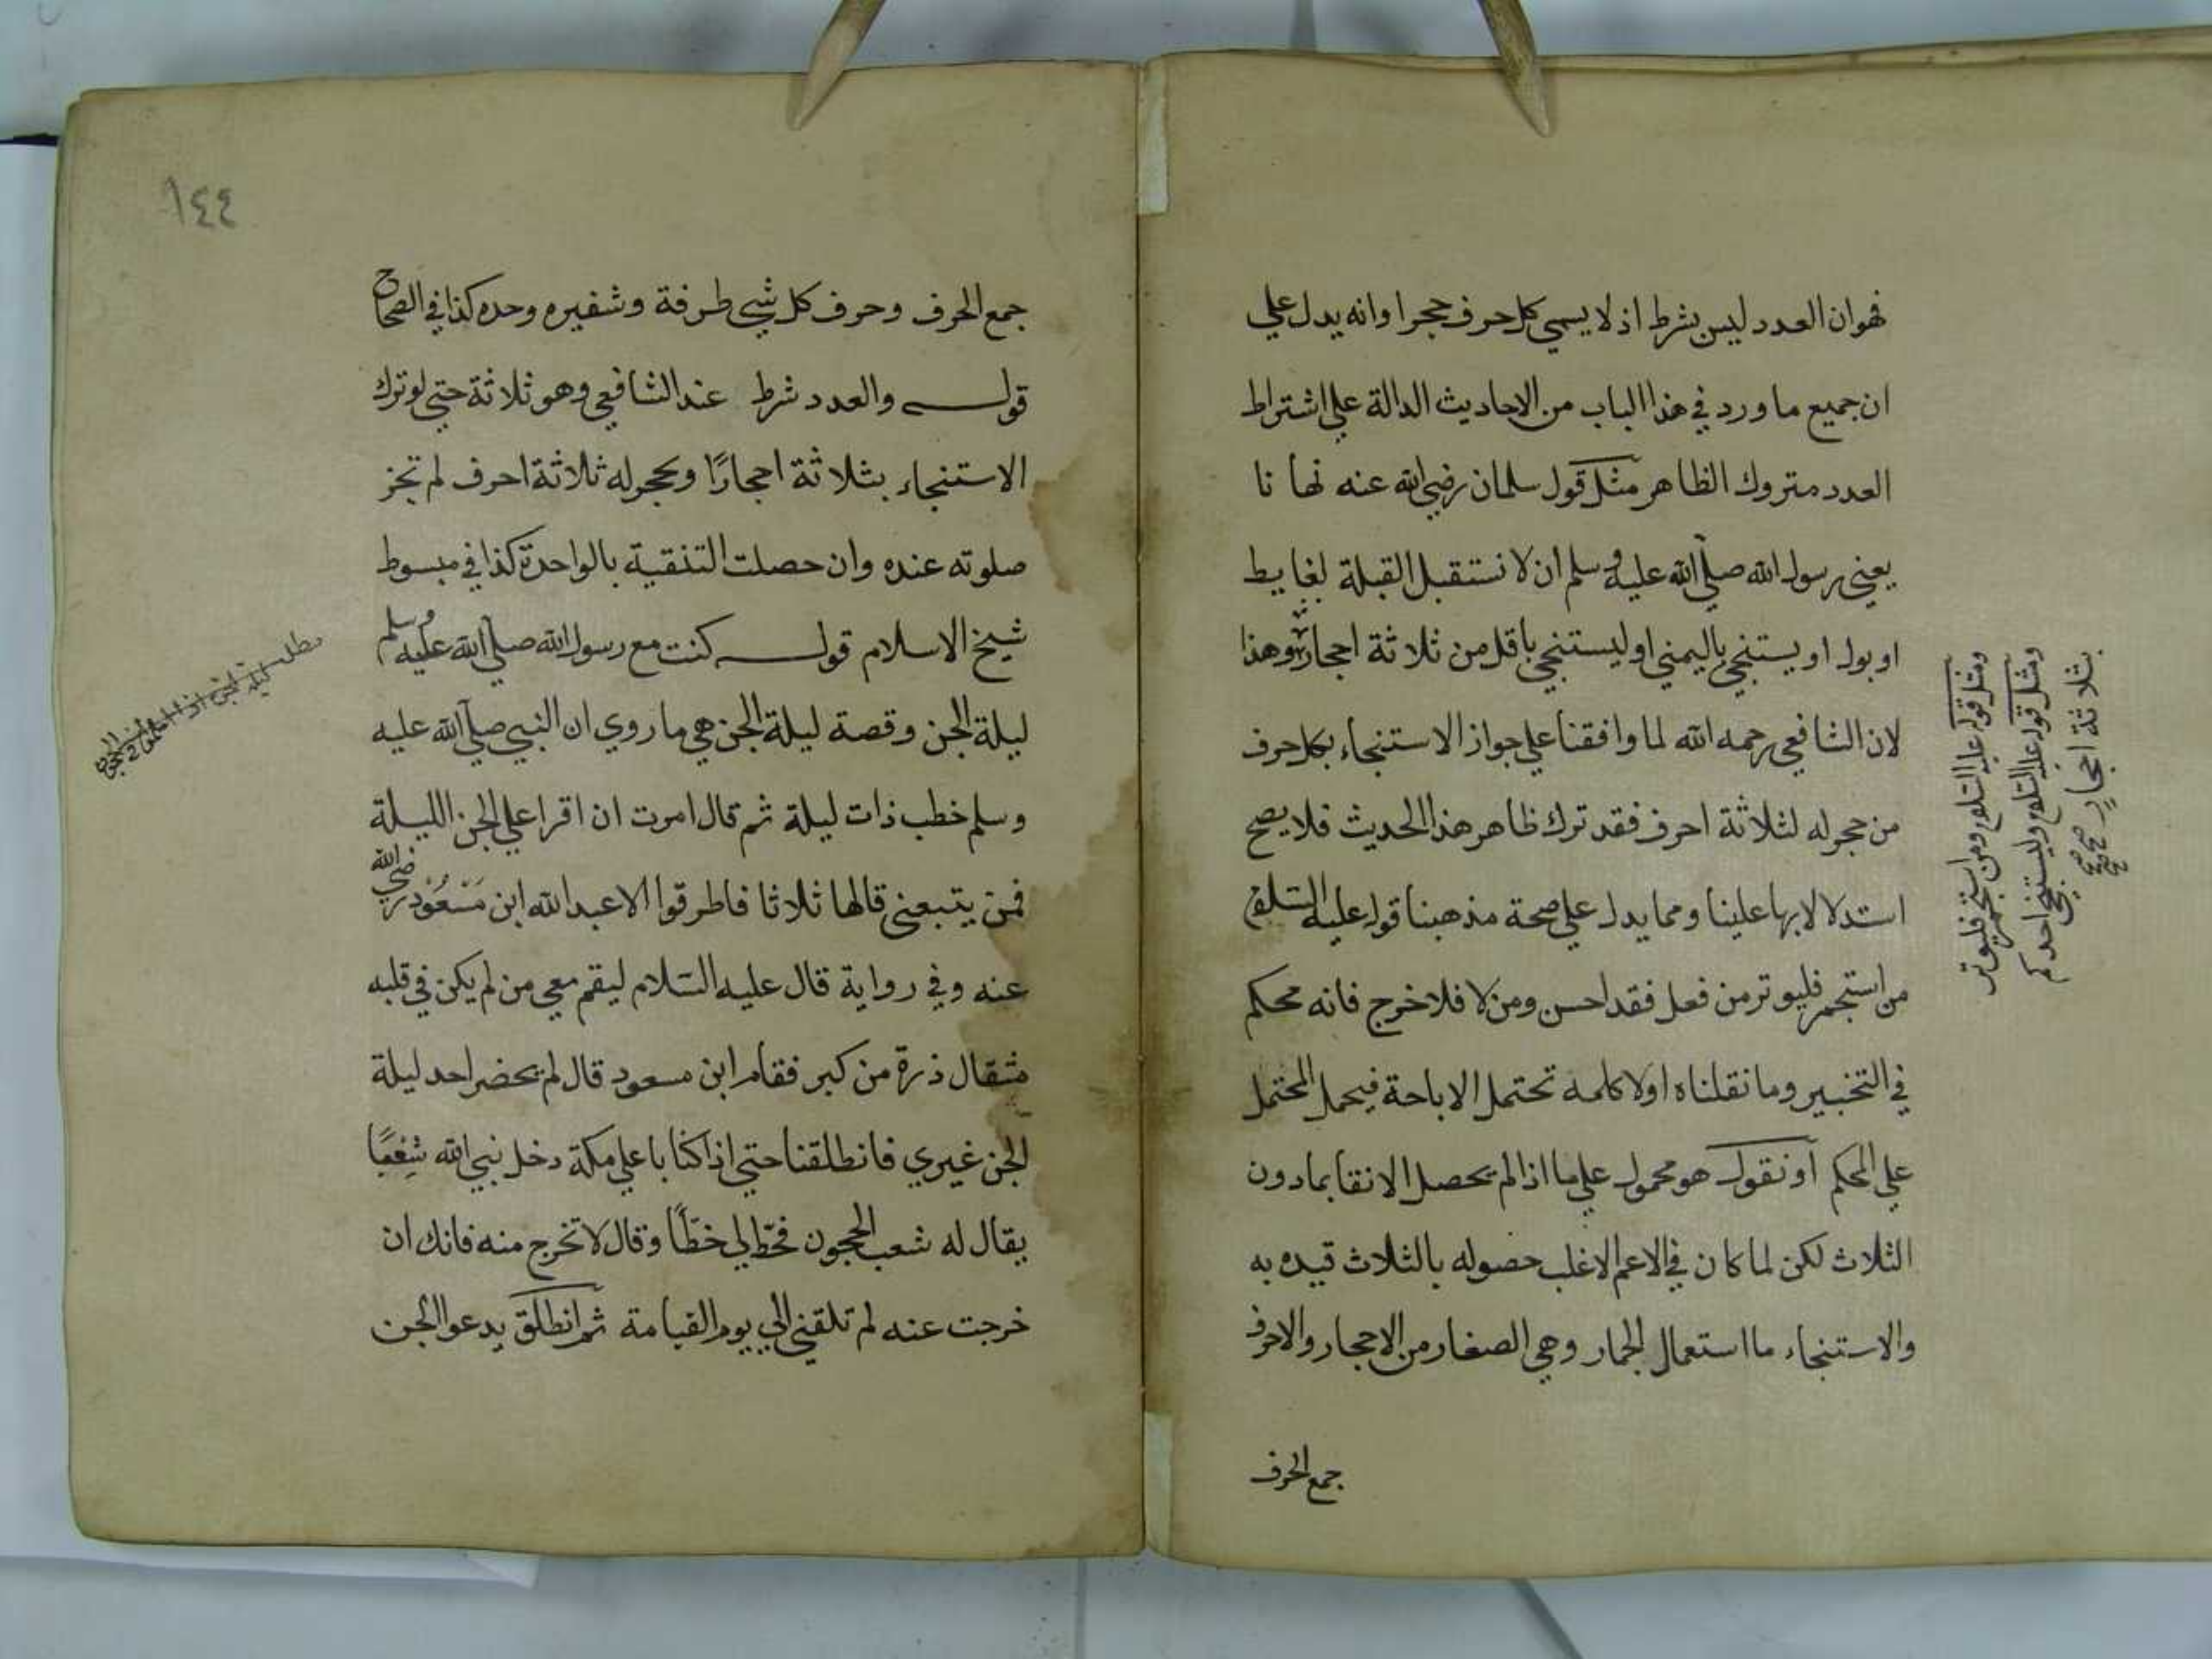 فهو ان العدد ليس بشرط اذ لا يسمي كل حرف حجرا وانه يدل علي
ان جميع ما ورد في هذا الباب من الاحاديث الدالة علي اشتراط
العدد متروك الظاهر مثل قول سلمان رضي الله عنه نها نا
يعني رسول الله صلي الله عليه وسلم ان لا نستقبل القبلة لغايط
او بول او يستنجي باليمني او ليستنجي باقل من ثلاثة احجار وهذا
لان الشافعي رحمه الله لما وافقنا علي جواز الاستنجاء بكل حرف
من حجر له لثلاثة احرف فقد ترك ظاهر هذا الحديث فلا يصح
استدلالا بها علينا ومما يدل علي صحة مذهبنا قوله عليه السلام
من استجمر فليوتر من فعل فقد احسن ومن لا فلا خرج فانه محكم
في التخيير وما نقلناه اولا كلمه تحتمل الاباحة فيحمل المحتمل
علي المحكم او نقول هو محمول علي ما اذا لم يحصل الانقا بما دون
الثلاث لكن لما كان في الاعم الاغلب حصوله بالثلاث قيده به
والاستنجاء ما استعمال الجمار وهي الصغار من الاحجار والاحرف
جمع الحرف
ومثل قوله عليه السلام ومن استجمر فليوتر
ومثل قوله عليه السلام وليستنجي احدكم
بثلاثة احجار صح صح
١٤٤
جمع الحرف وحرف كل شيي طرفة وشفيره وحده كذا في الصحاح
قوله والعدد شرط عند الشافعي وهو ثلاثة حتي لو ترك
الاستنجاء بثلاثة احجارًا وبحجر له ثلاثة احرف لم تجز
صلوته عنده وان حصلت التنقية بالواحدة كذا في مبسوط
شيخ الاسلام قوله كنت مع رسول الله صلي الله عليه وسلم
ليلة الجن وقصة ليلة الجن هي ما روي ان النبي صلي الله عليه
وسلم خطب ذات ليلة ثم قال امرت ان اقرا علي الجن الليلة
فمن يتبعني قالها ثلاثا فاطرقوا الا عبد الله ابن مَسْعُوْد رضي الله
عنه وفي رواية قال عليه السلام ليقم معي من لم يكن في قلبه
مثقال ذرة من كبر فقام ابن مسعود قال لم يحضر احد ليلة
الجن غيري فانطلقنا حتي اذا كنا باعلي مكة دخل نبي الله شِعْبًا
يقال له شعب الحجون فخط لي خطًا وقال لا تخرج منه فانك ان
خرجت عنه لم تلقني الي يوم القيامة ثم انطلق يدعو الجن